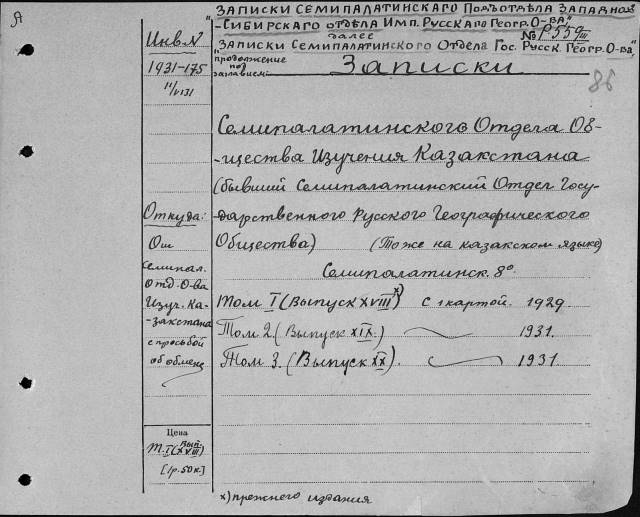 Я
"Записки Семипалатинскаго Подъотдѣла Западно-
-Сибирскаго отдѣла Имп. Русскаго Геогр. О-ва"
далее
"Записки Семипалатинского Отдела Гос. Русск. Геогр. О-ва,"
№ P 559/III
продолжение
под
заглавием:
Записки
86
Инв. №
1931-175
11/VI 31
Семипалатинского Отдела Об-
-щества Изучения Казакстана
(бывший Семипалатинский Отдел Госу-
-дарственного Русского Географического
Общества) (Тоже на казакском языке)
Семипалатинск. 8°
Том I (Выпуск XVIII) x) с 1 картой. 1929.
Том 2. (Выпуск XIX.) 1931.
Том 3. (Выпуск XX). 1931
Откуда:
От
Семипал.
Отд. О-ва
Изуч. Ка-
-закстана
с просьбой
об обмене
Цена
Т. I (Вып. XVIII)
[1р. 50к.]
x) прежнего издания